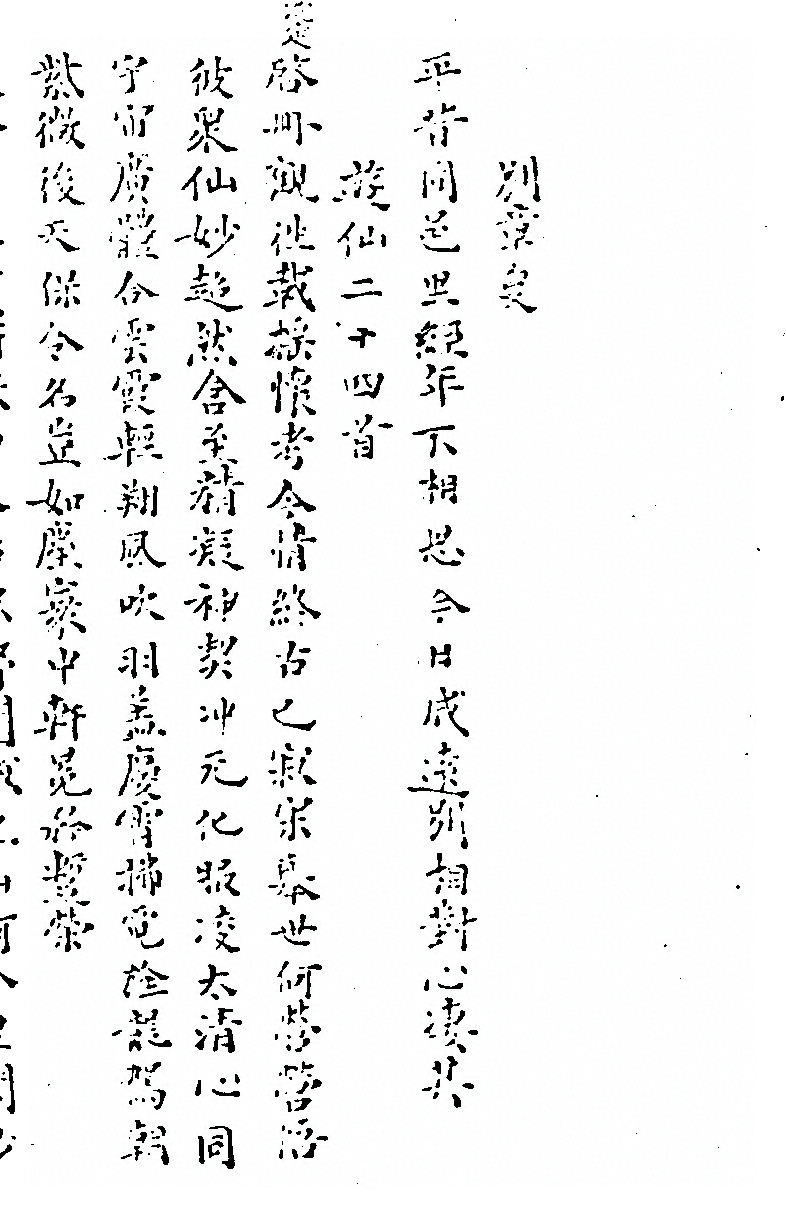 別章叟
平昔同邑里經年不相思今日成遠別相對心凄其
遊仙二十四首
啓册觀往載揺懷考今情終古已寂寂舉世何營營悟
彼衆仙妙超然含至精凝神契冲元化服凌太清心同
宇宙廣體合雲霞輕翔風吹羽盖慶霄拂電旌龍駕朝
紫微後天保令名豈如塵寰中軒冕矜蹔榮